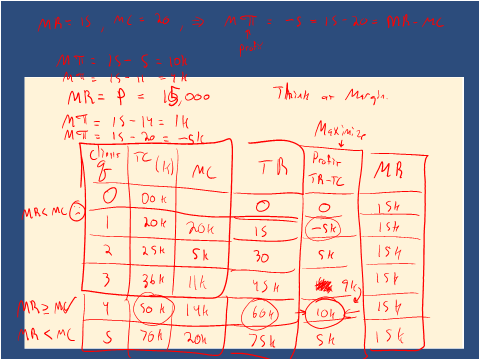 MR = 15, MC = 20, so Mπ = -5 = 15 - 20 = MR - MC
Mπ = 15 - 5 = 10k
Mπ = 15 - 11 = 4k
MR = P = 15,000
Think at Margin.
Mπ = 15 - 14 = 1k
Mπ = 15 - 20 = -5k
Maximize
Clients q TC (k) MC TR Profit TR-TC MR
0 00k 0 0 15k
MR < MC
1 20k 20k 15 -5k 15k
2 25k 5k 30 5k 15k
3 36k 11k 45k 9k 15k
MR ≥ MC 4 50k 14k 60k 10k 15k
MR < MC 5 70k 20k 75k 5k 15k